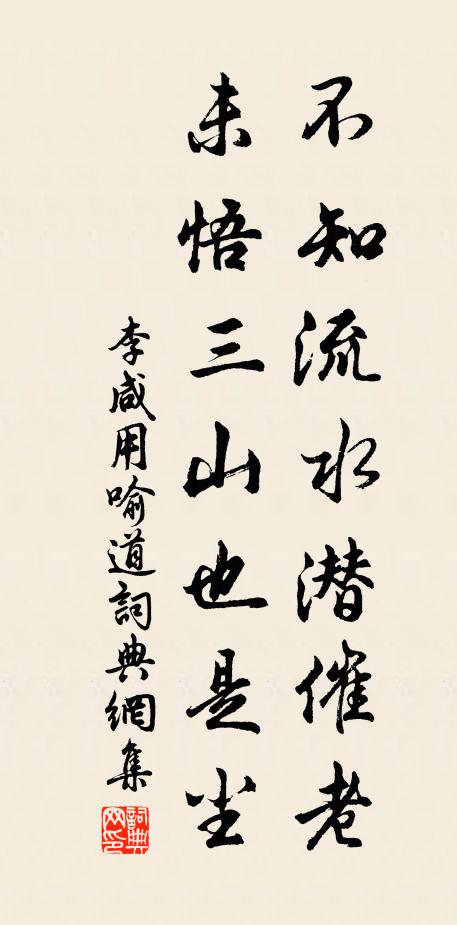 不知流水潜催老
未悟三山也是尘
李咸用喻道詞典網集
詞典網印